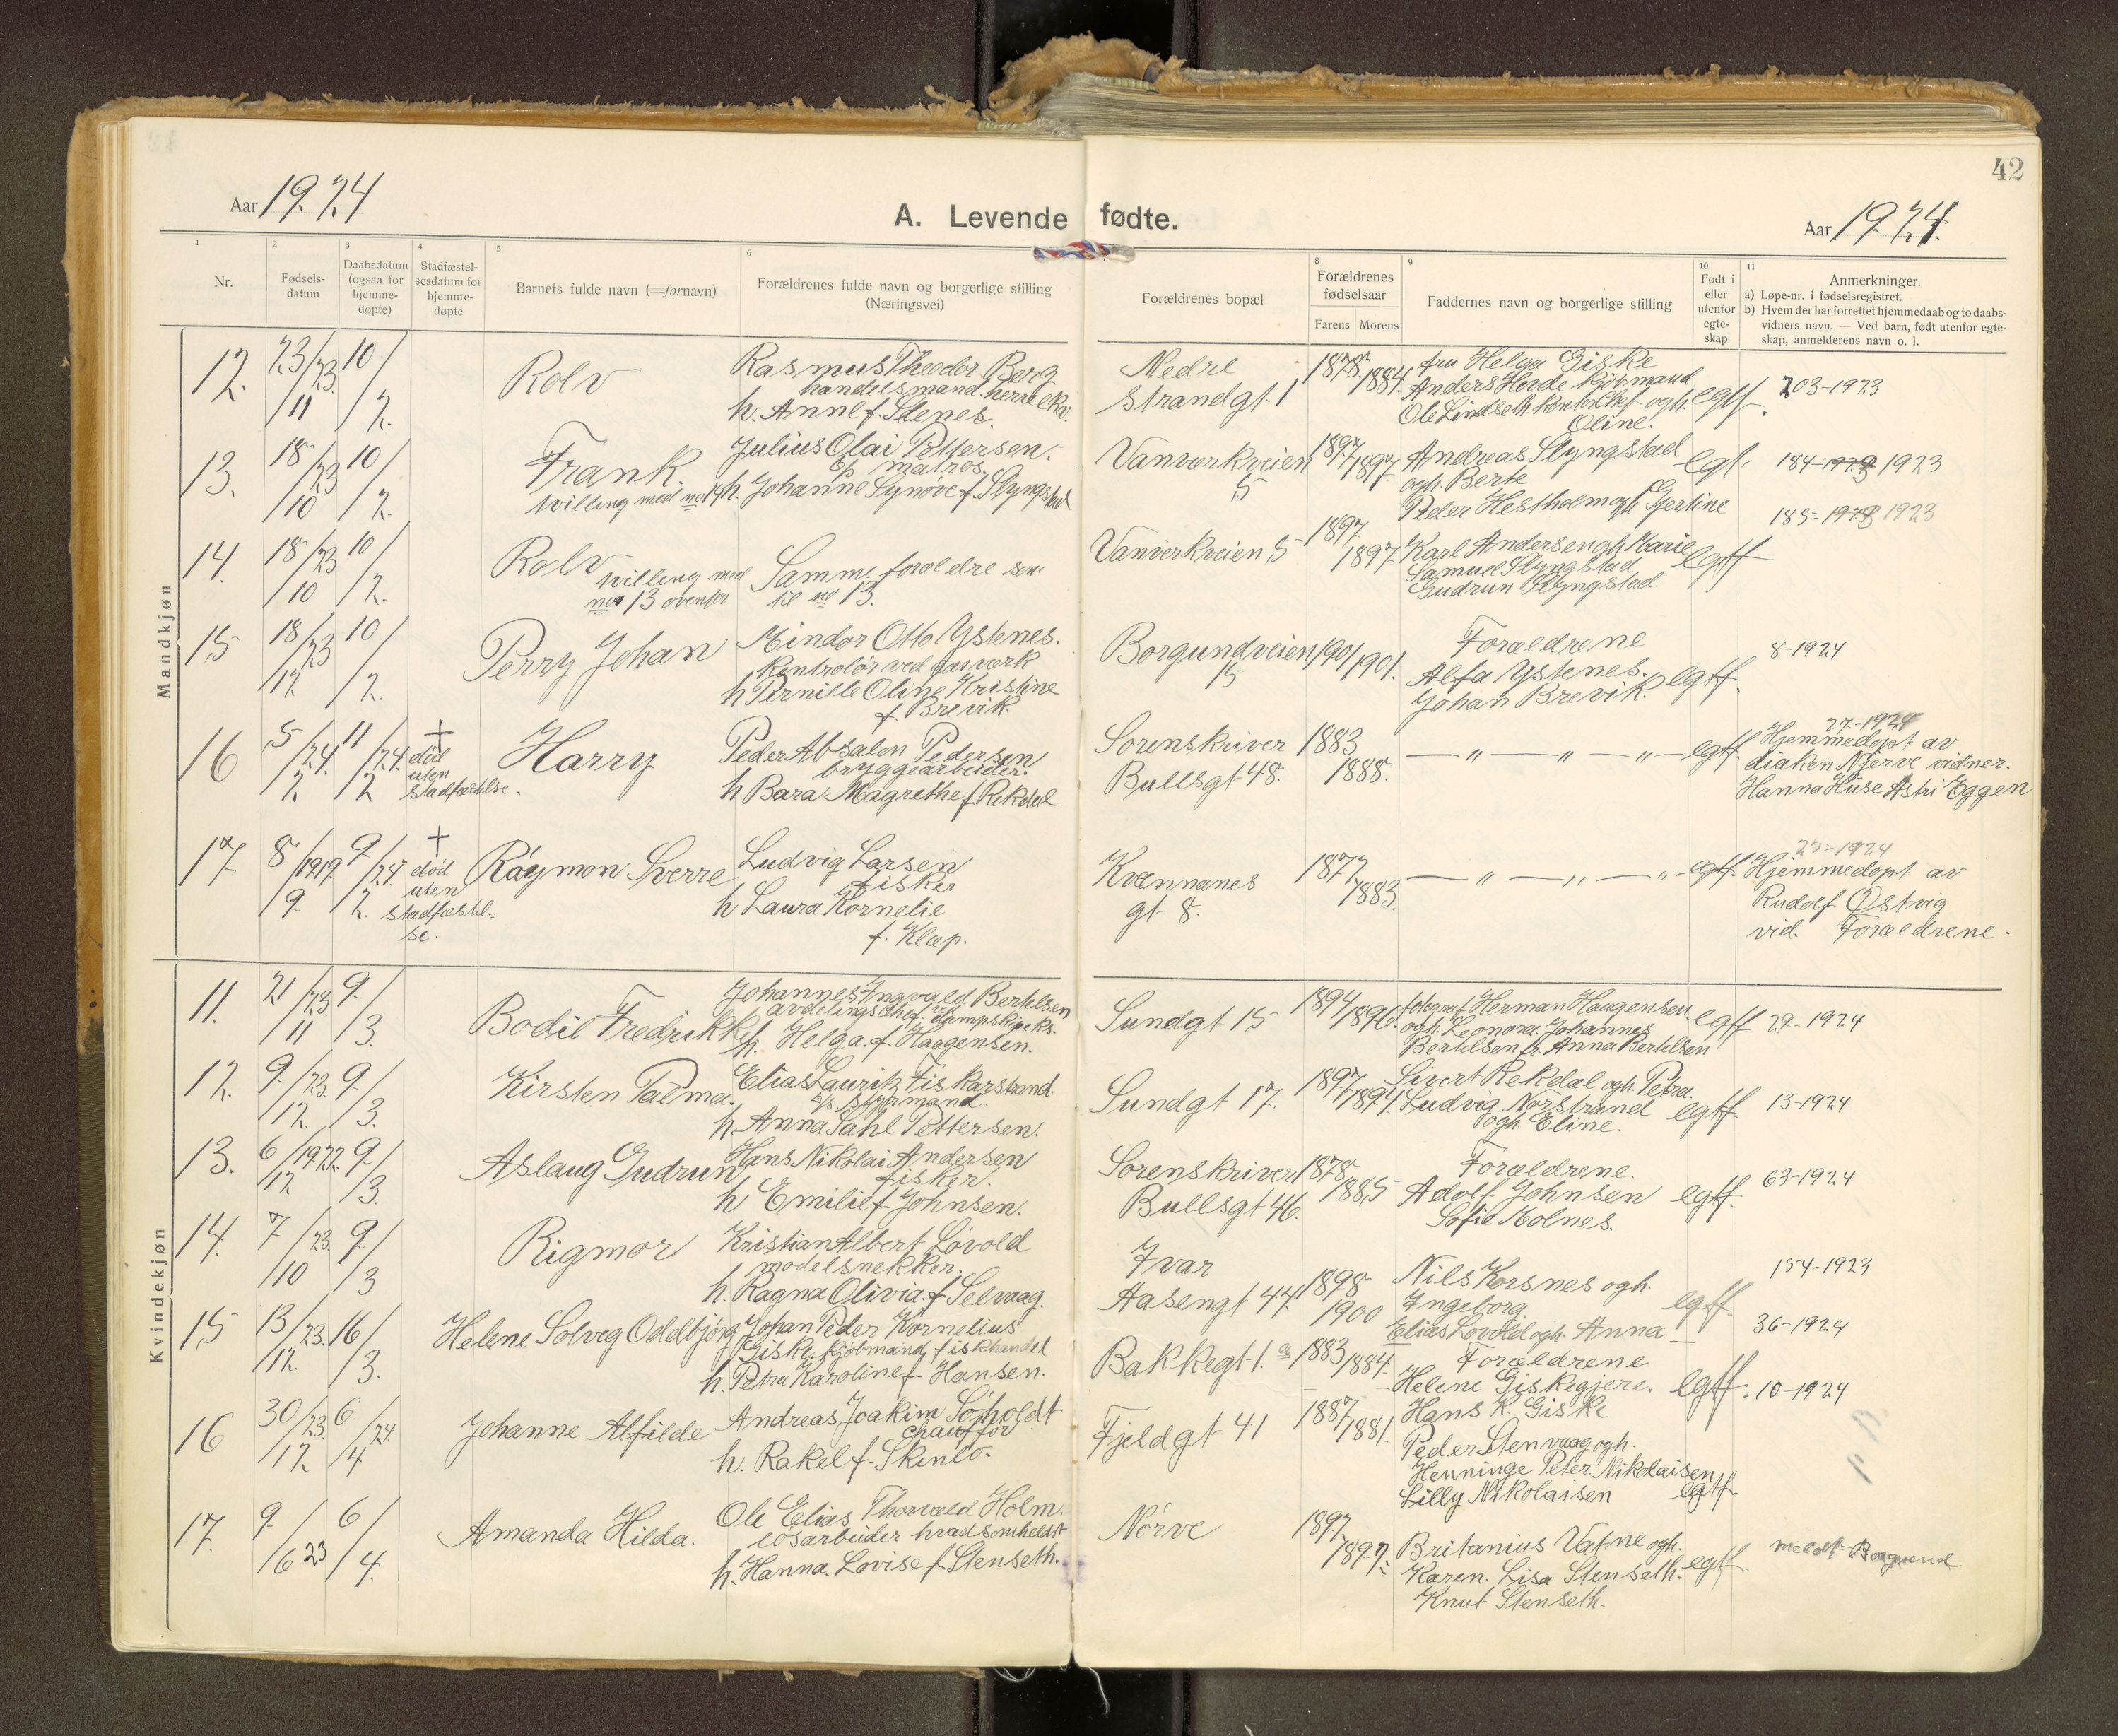 42
Aar 1924
A. Levende fødte.
Aar 1924.
1
Nr.
2
Fødsels-
datum
3
Daabsdatum
(ogsaa for
hjemme-
døpte)
4
Stadfæstel-
sesdatum for
hjemme-
døpte
5
Barnets fulde navn (=fornavn)
6
Forældrenes fulde navn og borgerlige stilling
(Næringsvei)
Forældrenes bopæl
8
Forældrenes
fødselsaar
Farens Morens
9
Faddernes navn og borgerlige stilling
10
Født i
eller
utenfor
egte-
skap
11
Anmerkninger.
a) Løpe-nr. i fødselsregistret.
b) Hvem der har forrettet hjemmedaab og to daabs-
vidners navn. — Ved barn, født utenfor egte-
skap, anmelderens navn o. l.
Mandkjøn
12. 23/11 23. 10/2.
Rolv
Rasmus Theodor Berg
handelsmand. herreekv.
h. Anne f. Stenes.
Nedre
Strandgt. 1
1878 1884.
fru Helga Giske
Anders Hovde kjøbmand
Ole Lindseth kontorchef ogh.
Oline.
egtf.
203-1923
13. 18/10 23 10/2.
Frank.
tvilling med no 14
Julius Olai Pettersen.
matros.
h. Johanne Synøve f. Slyngstad
Vanværkveien
5
1897 1897.
Andreas Slyngstad
ogh. Berte
Peder Hestholm ogh. Gjertine
egt.
184-1923 1923
14. 18/10 23 10/2.
Rolv tvilling med
no 13 ovenfor
Samme foræeldre som
til no 13.
Vanverkveien 5
1897
1897.
Karl Andersen ogh. Marie
Samuel Slyngstad
Gudrun Slyngstad
egtf
185-1923 1923
15 18/12. 23 10/2.
Perry Johan
Mindor Otto Ystenes.
Kontrolør ved gasværk
h Pernille Oline Kristine
f. Brevik.
Borgundveien
15
1901 1901.
Forældrene
Alfa Ystenes.
Johan Brevik.
egtf.
8-1924
16 5/2 24. 11/2 24.
†
død
uten
stadfæstelse.
Harry
Peder Absalon Pedersen
bryggearbeider.
h Bara Magrethe f. Rekdal
Sorenskriver
Bullsgt 48.
1883
1888.
— „ — „ — „ —
egtf.
27-1924
Hjemmedøpt av
diakon Njerve vidner.
Hanna Huse Astri Eggen
17. 8/9 1919 9/2. 24.
†
død
uten
stadfæstel=
se.
Raymon Sverre
Ludvig Larsen
fisker
h Laura Kornelie
f. Klæp.
Kvennanes
gt 8.
1877
1883.
— „ — „ — „ —
egtf.
Hjemmedøpt av
Rudolf Østvig
vid. Forældrene.
Kvindekjøn
11. 21/11 23. 9/3.
Bodil Fredrikke
Johannes Ingvald Bertelsen
avdelingschef ved dampskipseks.
h. Helga. f. Haagensen.
Sundgt 15
1894 1896.
fotograf Herman Haagensen
ogh. Leonora. Johannes
Bertelsen fr. Anna Bertelsen
egtf
29-1924
12. 9/12. 23. 9/3.
Kirsten Palma.
Elias Lauritz Fiskarstrand
styrmand.
h. Anna Dahl Pettersen.
Sundgt 17.
1897 1894.
Sivert Rekdal ogh. Petra.
Ludvig Norstrand
ogh. Eline.
egtf.
13-1924
13. 6/12 1922. 9/3.
Aslaug Gudrun
Hans Nikolai Andersen
fisker.
h Emilie f. Johnsen.
Sorenskriver
Bullsgt 46.
1878
1885
Forældrene.
Adolf Johnsen
Sofie Molnes.
egtf.
63-1924
14. 7/10 23. 9/3
Rigmor
Kristian Albert Løvold
modelsnekker.
h. Ragna Olivia. f. Selvaag.
Ivar
Aasengt 47.
1898
1900
Nils Korsnes ogh.
Ingeborg.
Elias Lovold ogh. Anna
egtf.
154-1923
15 13/12. 23. 16/3.
Helene Solveg Oddbjørg
Johan Peder Kornelius
Giske, kjøbmand, fiskhandel
h. Petra Karoline f. Hansen.
Bakkegt 1. a
1883 1884.
Forældrene
Helene Giskegjerde.
Hans K. Giske
egtf.
36-1924
16 30/12. 23. 6/4 24.
Johanne Alfilde
Andreas Joakim Søholdt
chauffør
h. Rakel f. Skinlo.
Fjeldgt 41
1887 1881.
Peder Stenvaag ogh.
Henninge Peter. Nikolaisen
Lilly Nikolaisen
egtf.
10-1924
17. 9/6 23 6/4.
Amanda Hilda.
Ole Elias Thorvald Holm.
løsarbeider hvadsomhelst
h. Hanna. Lovise f. Stenseth.
Nørve
1897
1897.
Britanius Vatne ogh.
Karen. Lisa Stenseth.
Knut Stenseth.
egtf
meldt Borgund